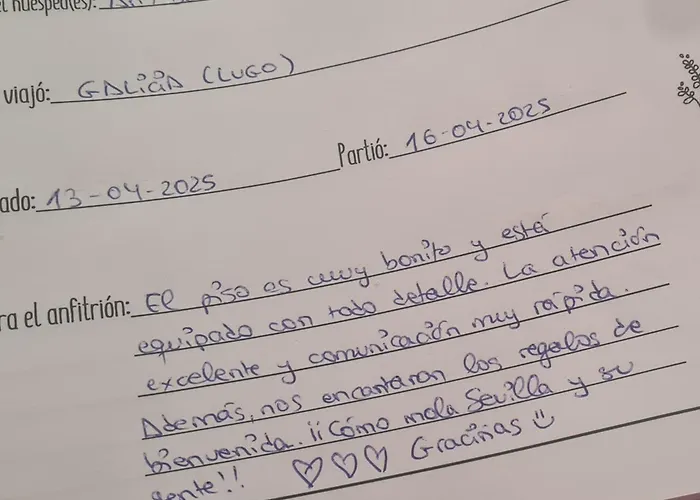 el huésped(es):
viajó: GALICIA (LUGO)
Partió: 16-04-2025
ado: 13-04-2025
ra el anfitrión: El piso es muy bonito y está
equipado con todo detalle. La atención
excelente y comunicación muy rápida.
Además, nos encantaron los regalos de
bienvenida. ¡¡Cómo mola Sevilla y su
gente!! ♡♡♡ Graciñas ☺